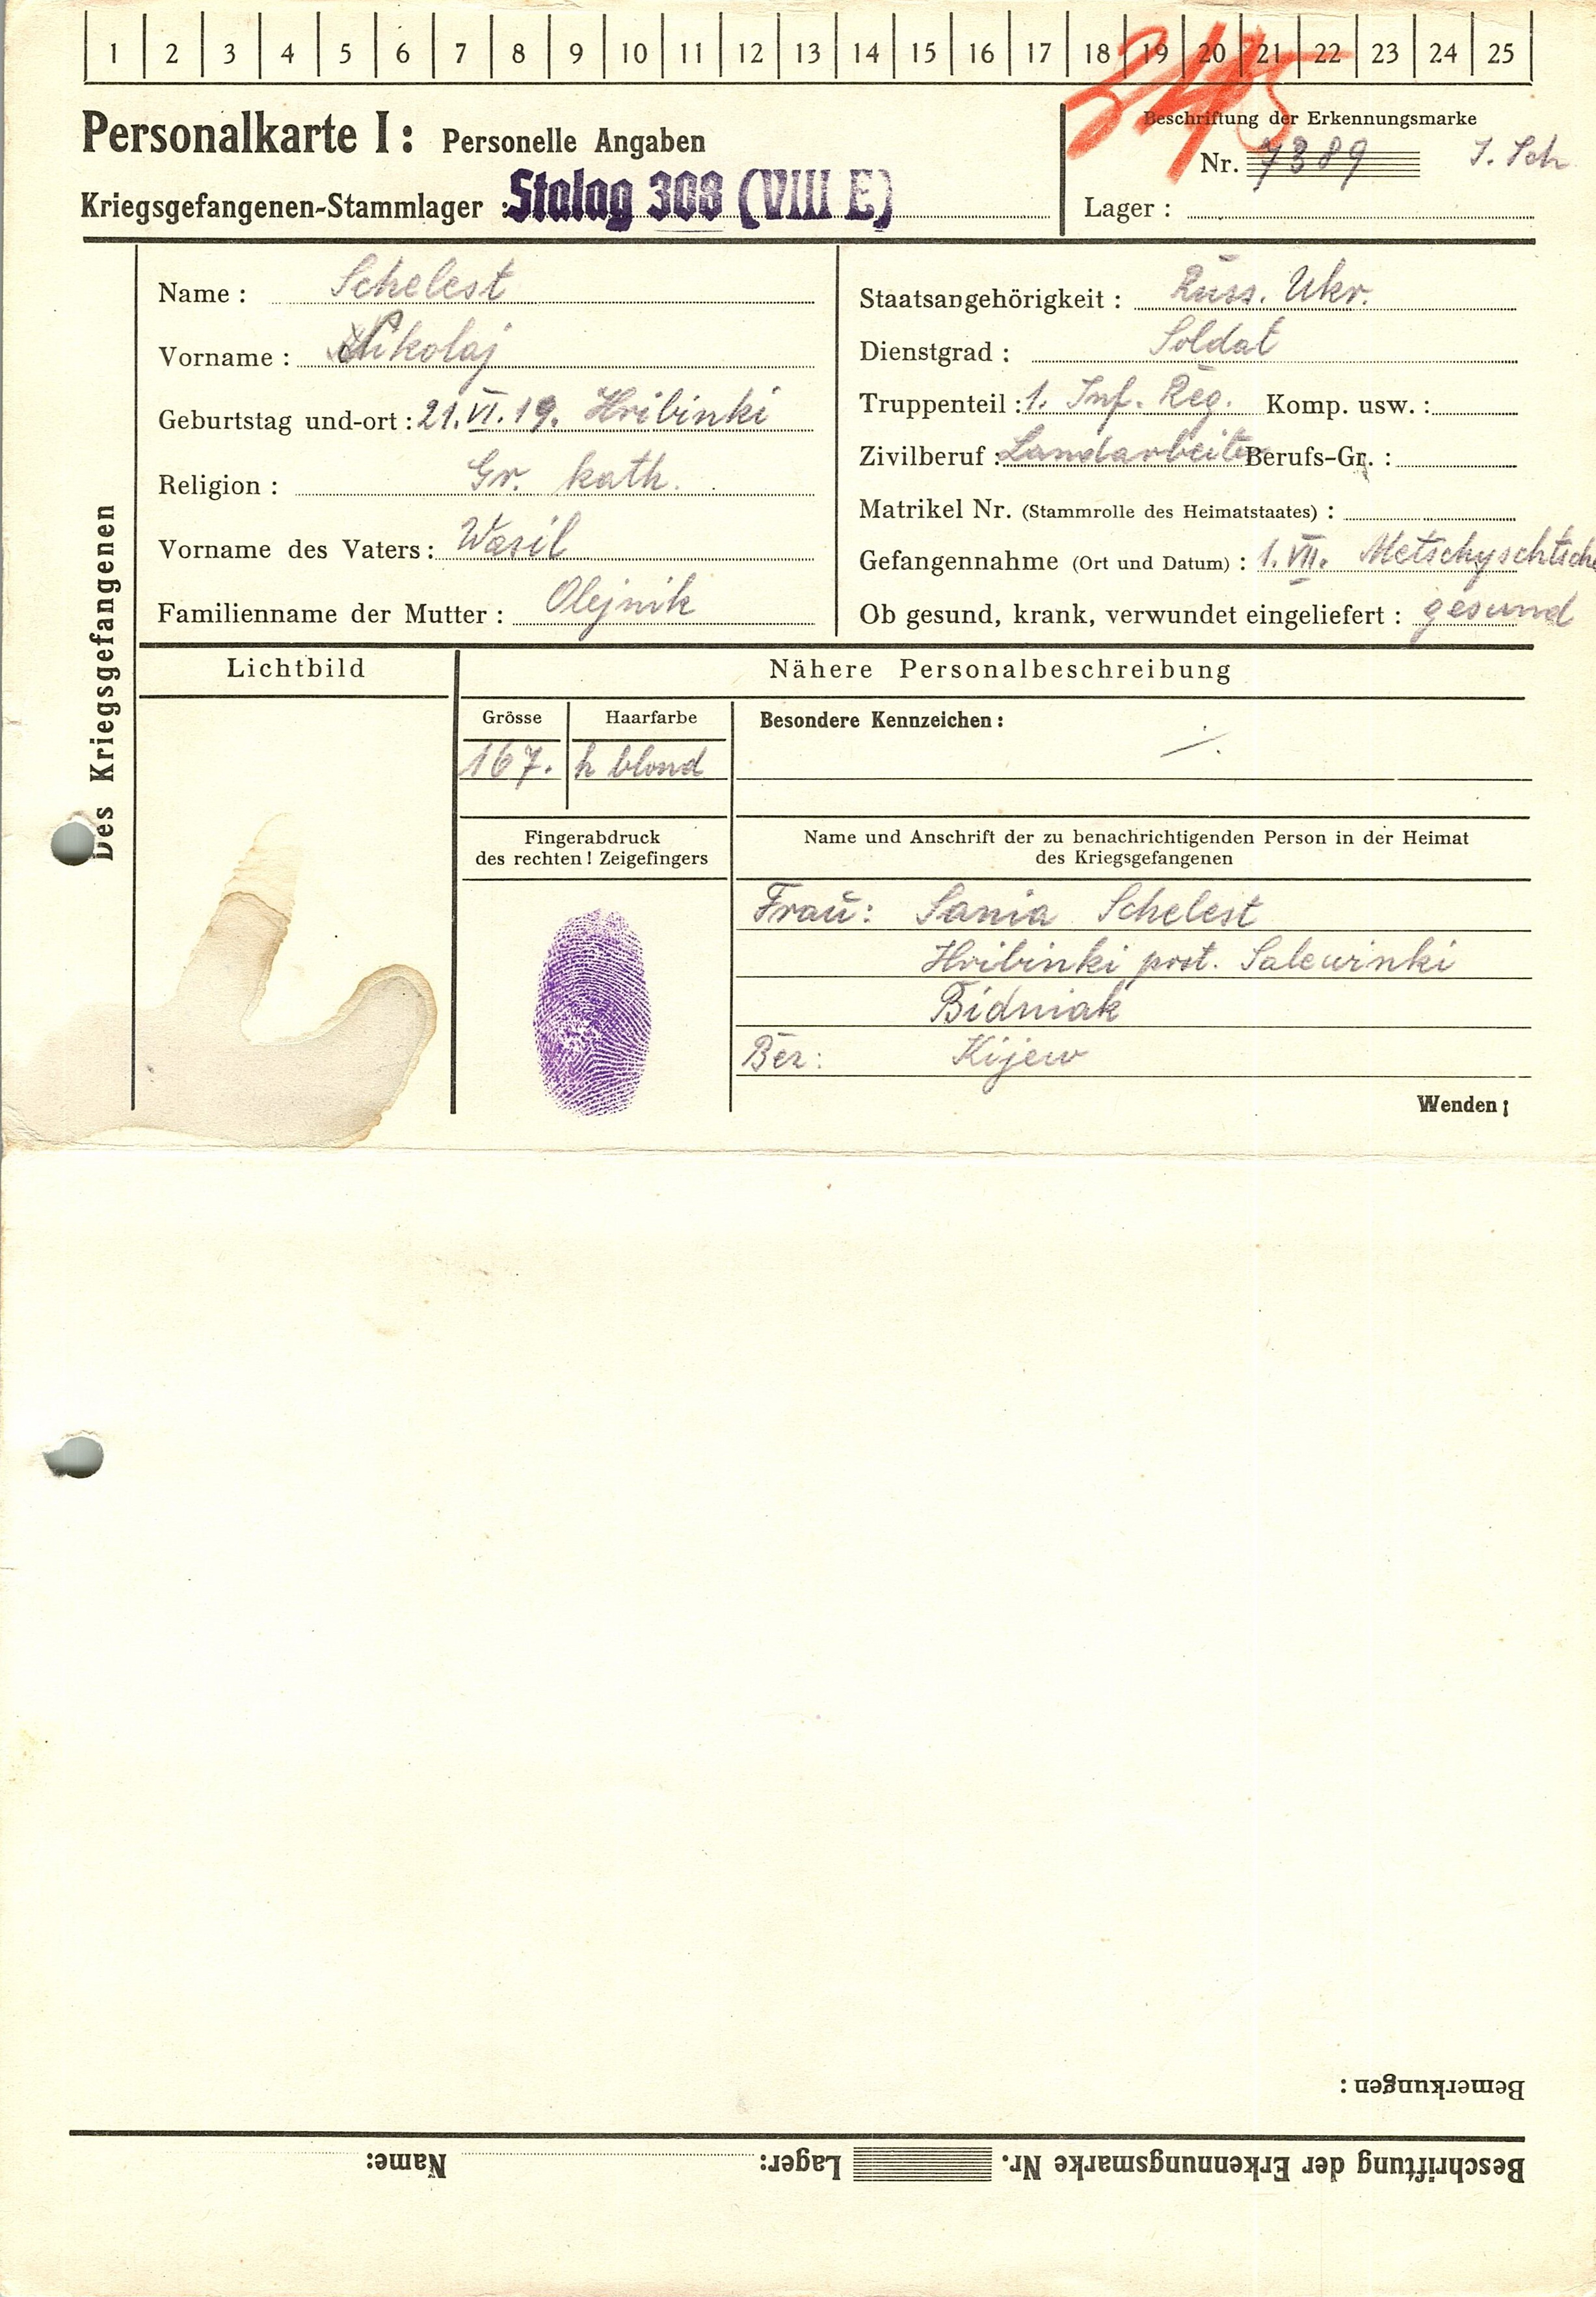 1 2 3 4 5 6 7 8 9 10 11 12 13 14 15 16 17 18 19 20 21 22 23 24 25
Personalkarte I: Personelle Angaben
Kriegsgefangenen-Stammlager : Stalag 308 (VIII E)
Beschriftung der Erkennungsmarke
Nr. 7389
Lager :
Des Kriegsgefangenen
Name : Schelest
Vorname : Nikolaj
Geburtstag und-ort : 21.VI.19. Hribinki
Religion : Gr. kath.
Vorname des Vaters : Wasil
Familienname der Mutter : Olejnik
Staatsangehörigkeit : Russ. Ukr.
Dienstgrad : Soldat
Truppenteil : 1. Inf. Reg. Komp. usw. :
Zivilberuf : Landarbeiter Berufs-Gr. :
Matrikel Nr. (Stammrolle des Heimatstaates) :
Gefangennahme (Ort und Datum) : 1. VII. Metschyschtsche
Ob gesund, krank, verwundet eingeliefert : gesund
Lichtbild
Nähere Personalbeschreibung
Grösse
167.
Haarfarbe
h blond
Besondere Kennzeichen :
Fingerabdruck
des rechten! Zeigefingers
Name und Anschrift der zu benachrichtigenden Person in der Heimat
des Kriegsgefangenen
Frau: Sania Schelest
Hribinki post. Salewinki
Bidniak
Bez: Kijew
Wenden!
Bemerkungen :
Beschriftung der Erkennungsmarke Nr. Lager: Name: